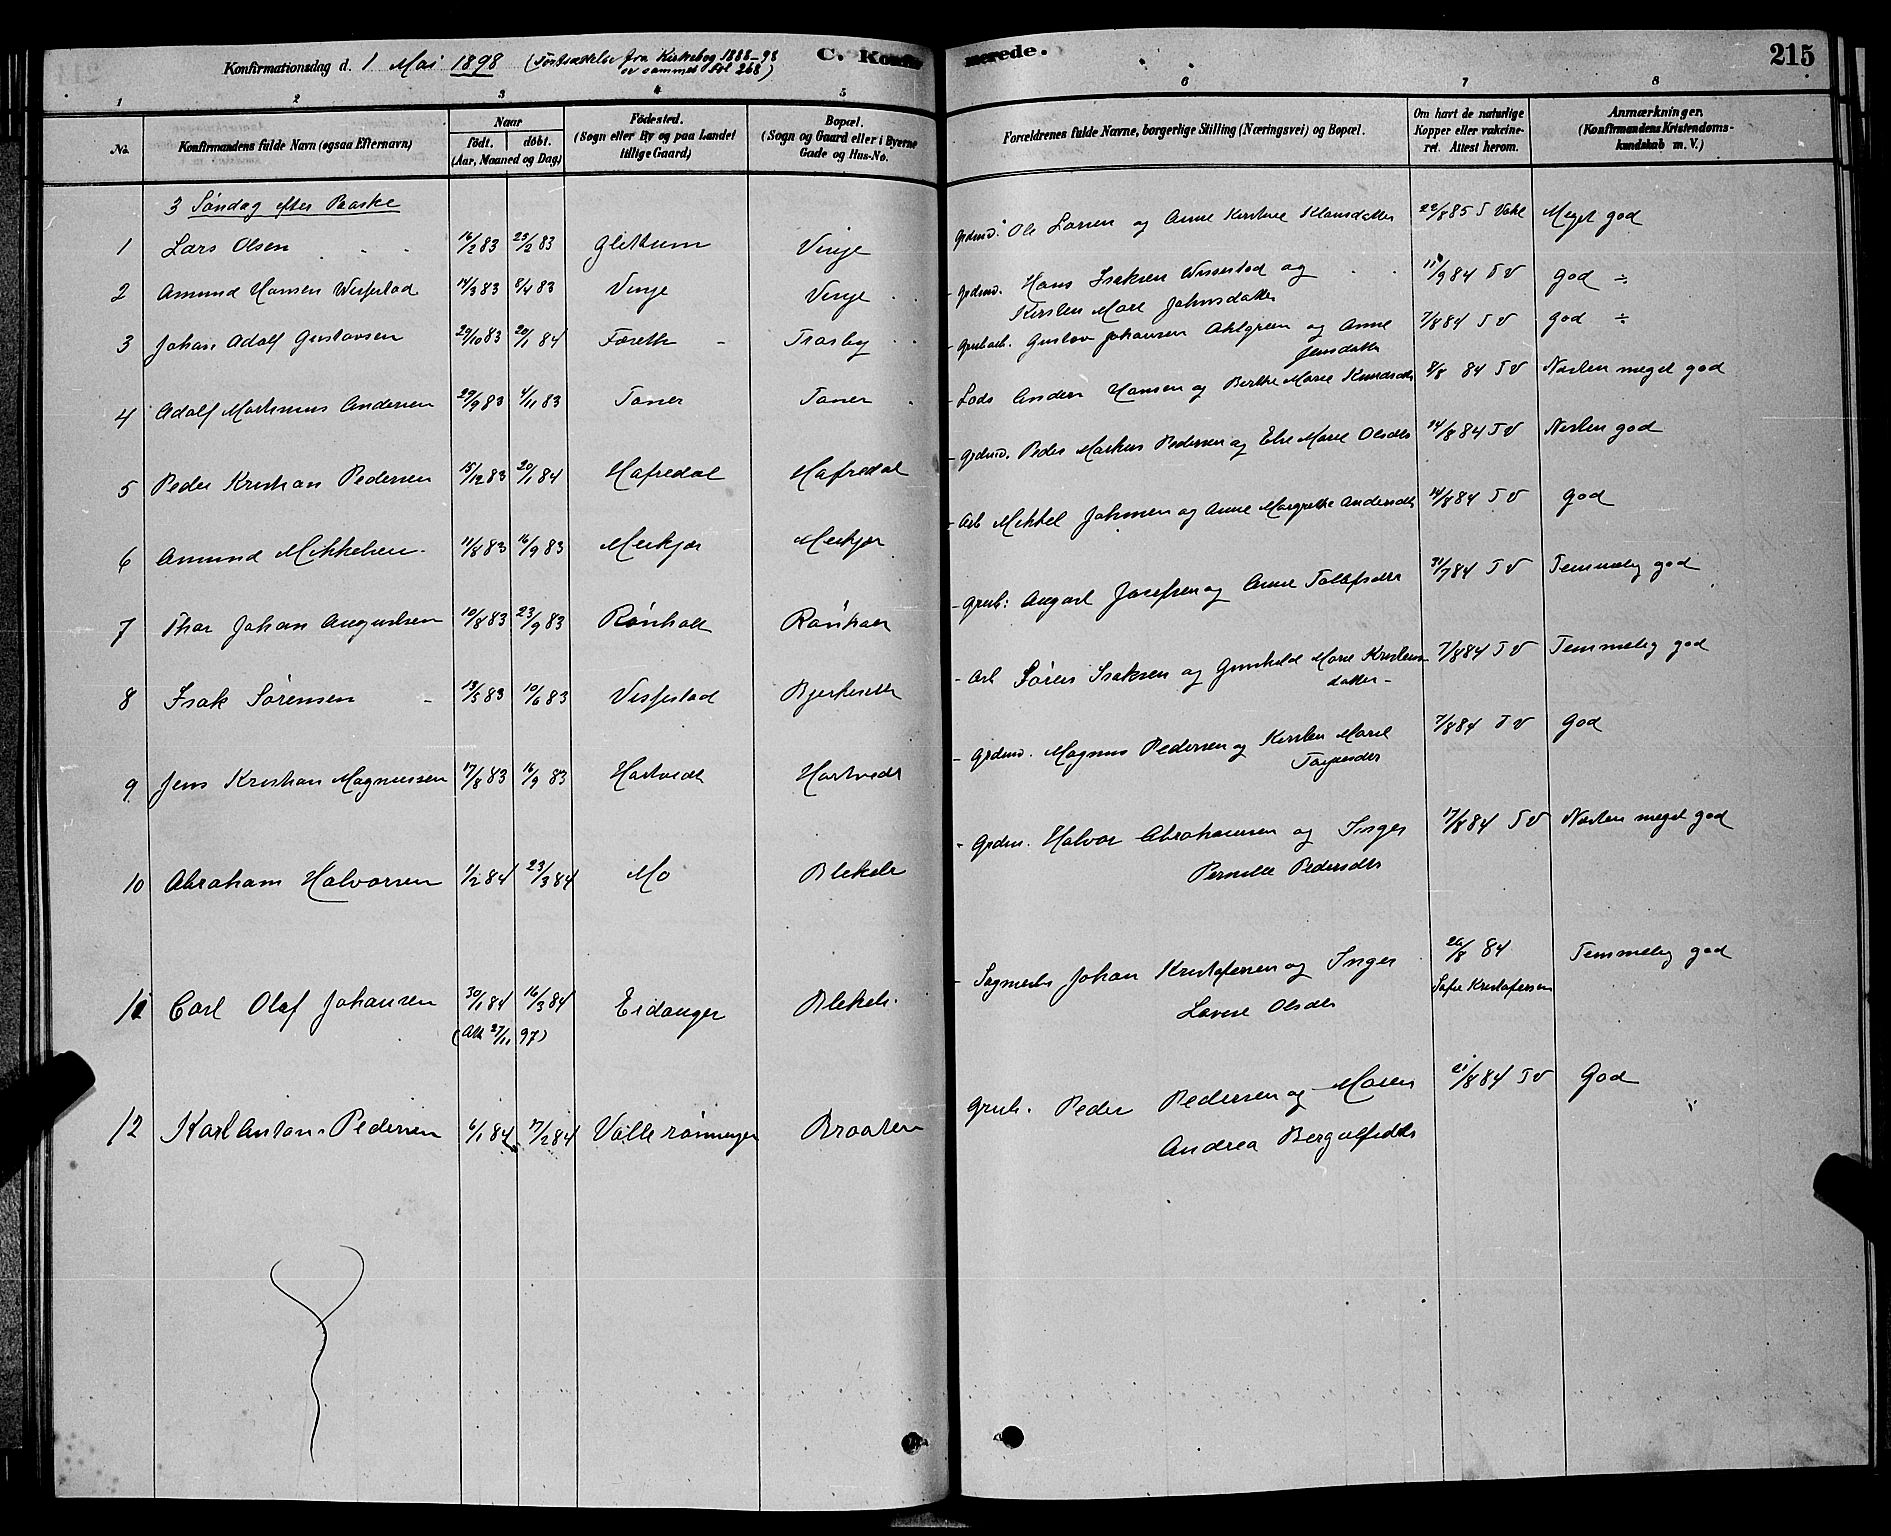 Konfirmationsdag d. 1 Mai 1898 (Fortsættelse fra Kirkebog 1888-98
C. Konfirmerede. 215
1 2 3 4 5 6 7 8
No. Konfirmandens fulde Navn (ogsaa Efternavn) Naar født. døbt. (Aar, Maaned og Dag) Fødested. (Sogn eller By og paa Landet tillige Gaard) Bopæl. (Sogn og Gaard eller i Byerne Gade og Hus-No. Forældrenes fulde Navne, borgerlige Stilling (Næringsvei) og Bopæl. Om havt de naturlige Kopper eller vakcineret. Attest herom. Anmærkninger. (Konfirmandens Kristendomskundskab m. V.)
3 Søndag efter Paaske
1 Lars Olsen 16/2 83 23/2 83 Glittum Vinje Grdmd. Ole Larsen og Anne Kirstine Klausdatter 22/8 85 Meget god
2 Amund Hansen Wisjestad 14/3 83 8/4 83 Vinje Vinje Grdmd. Hans Isaksen Wissestad og
Kirsten Mare Johnsdatter 11/9 84 T V God ÷
3 Johan Adolf Gustavsen 29/10 83 20/1 84 Færeth Traaby Grubarb. Gustav Johansen Ahlgreen og Anne
Jensdatter 7/8 84 T V God ÷
4 Adolf Martinius Andersen 29/9 83 4/11 83 Taner Taner Lods Anders Hansen og Berthe Marie Knudsdtr 8/8 84 T V Næsten meget god
5 Peder Kristian Pedersen 15/12 83 20/1 84 Hafredal Hafredal Grdmd. Peder Markus Pedersen og Else Marie Olsdtr 14/8 84 T V Næsten god
6 Amund Mikkelsen 11/8 83 16/9 83 Meikjær Meikjær Arb Mikkel Johnsen og Anne Margrethe Andersdtr 14/8 84 T V God
7 Thor Johan Augustsen 10/8 83 23/9 83 Rønholt Rønholt Grub: August Josefsen og Anne Tolefsdtr 31/7 84 T V Temmelig god
8 Isak Sørensen 13/5 83 10/6 83 Visjestad Bjerkeseth Arb Søren Isaksen og Gunhild Marie Kristens
datter 7/8 84 T V Temmelig god
9 Jens Kristian Magnussen 17/8 83 16/9 83 Hartvedt Hartvedt Grdmd. Magnus Pedersen og Kirsten Marie
7/8 84 T V God
10 Abraham Halvorsen 1/2 84 23/3 84 Mo Blekeb Grdmd. Halvor Abrahamsen og Inger
Pernille Pedersdtr 17/8 84 T V Næsten meget god
11 Carl Olaf Johansen 30/1 84 16/3 84 Eidanger Blekeb. Johan Kristofersen og Inger
(Att 27/11 97) Lovise Olsdtr 26/8 84 Temmelig god
Kristofersen
12 Karl Anton Pedersen 6/1 84 17/2 84 Valle rønningen Braaten Grub. Peder Pedersen og Maren
Andrea Bergulfsdtr 21/8 84 T V God